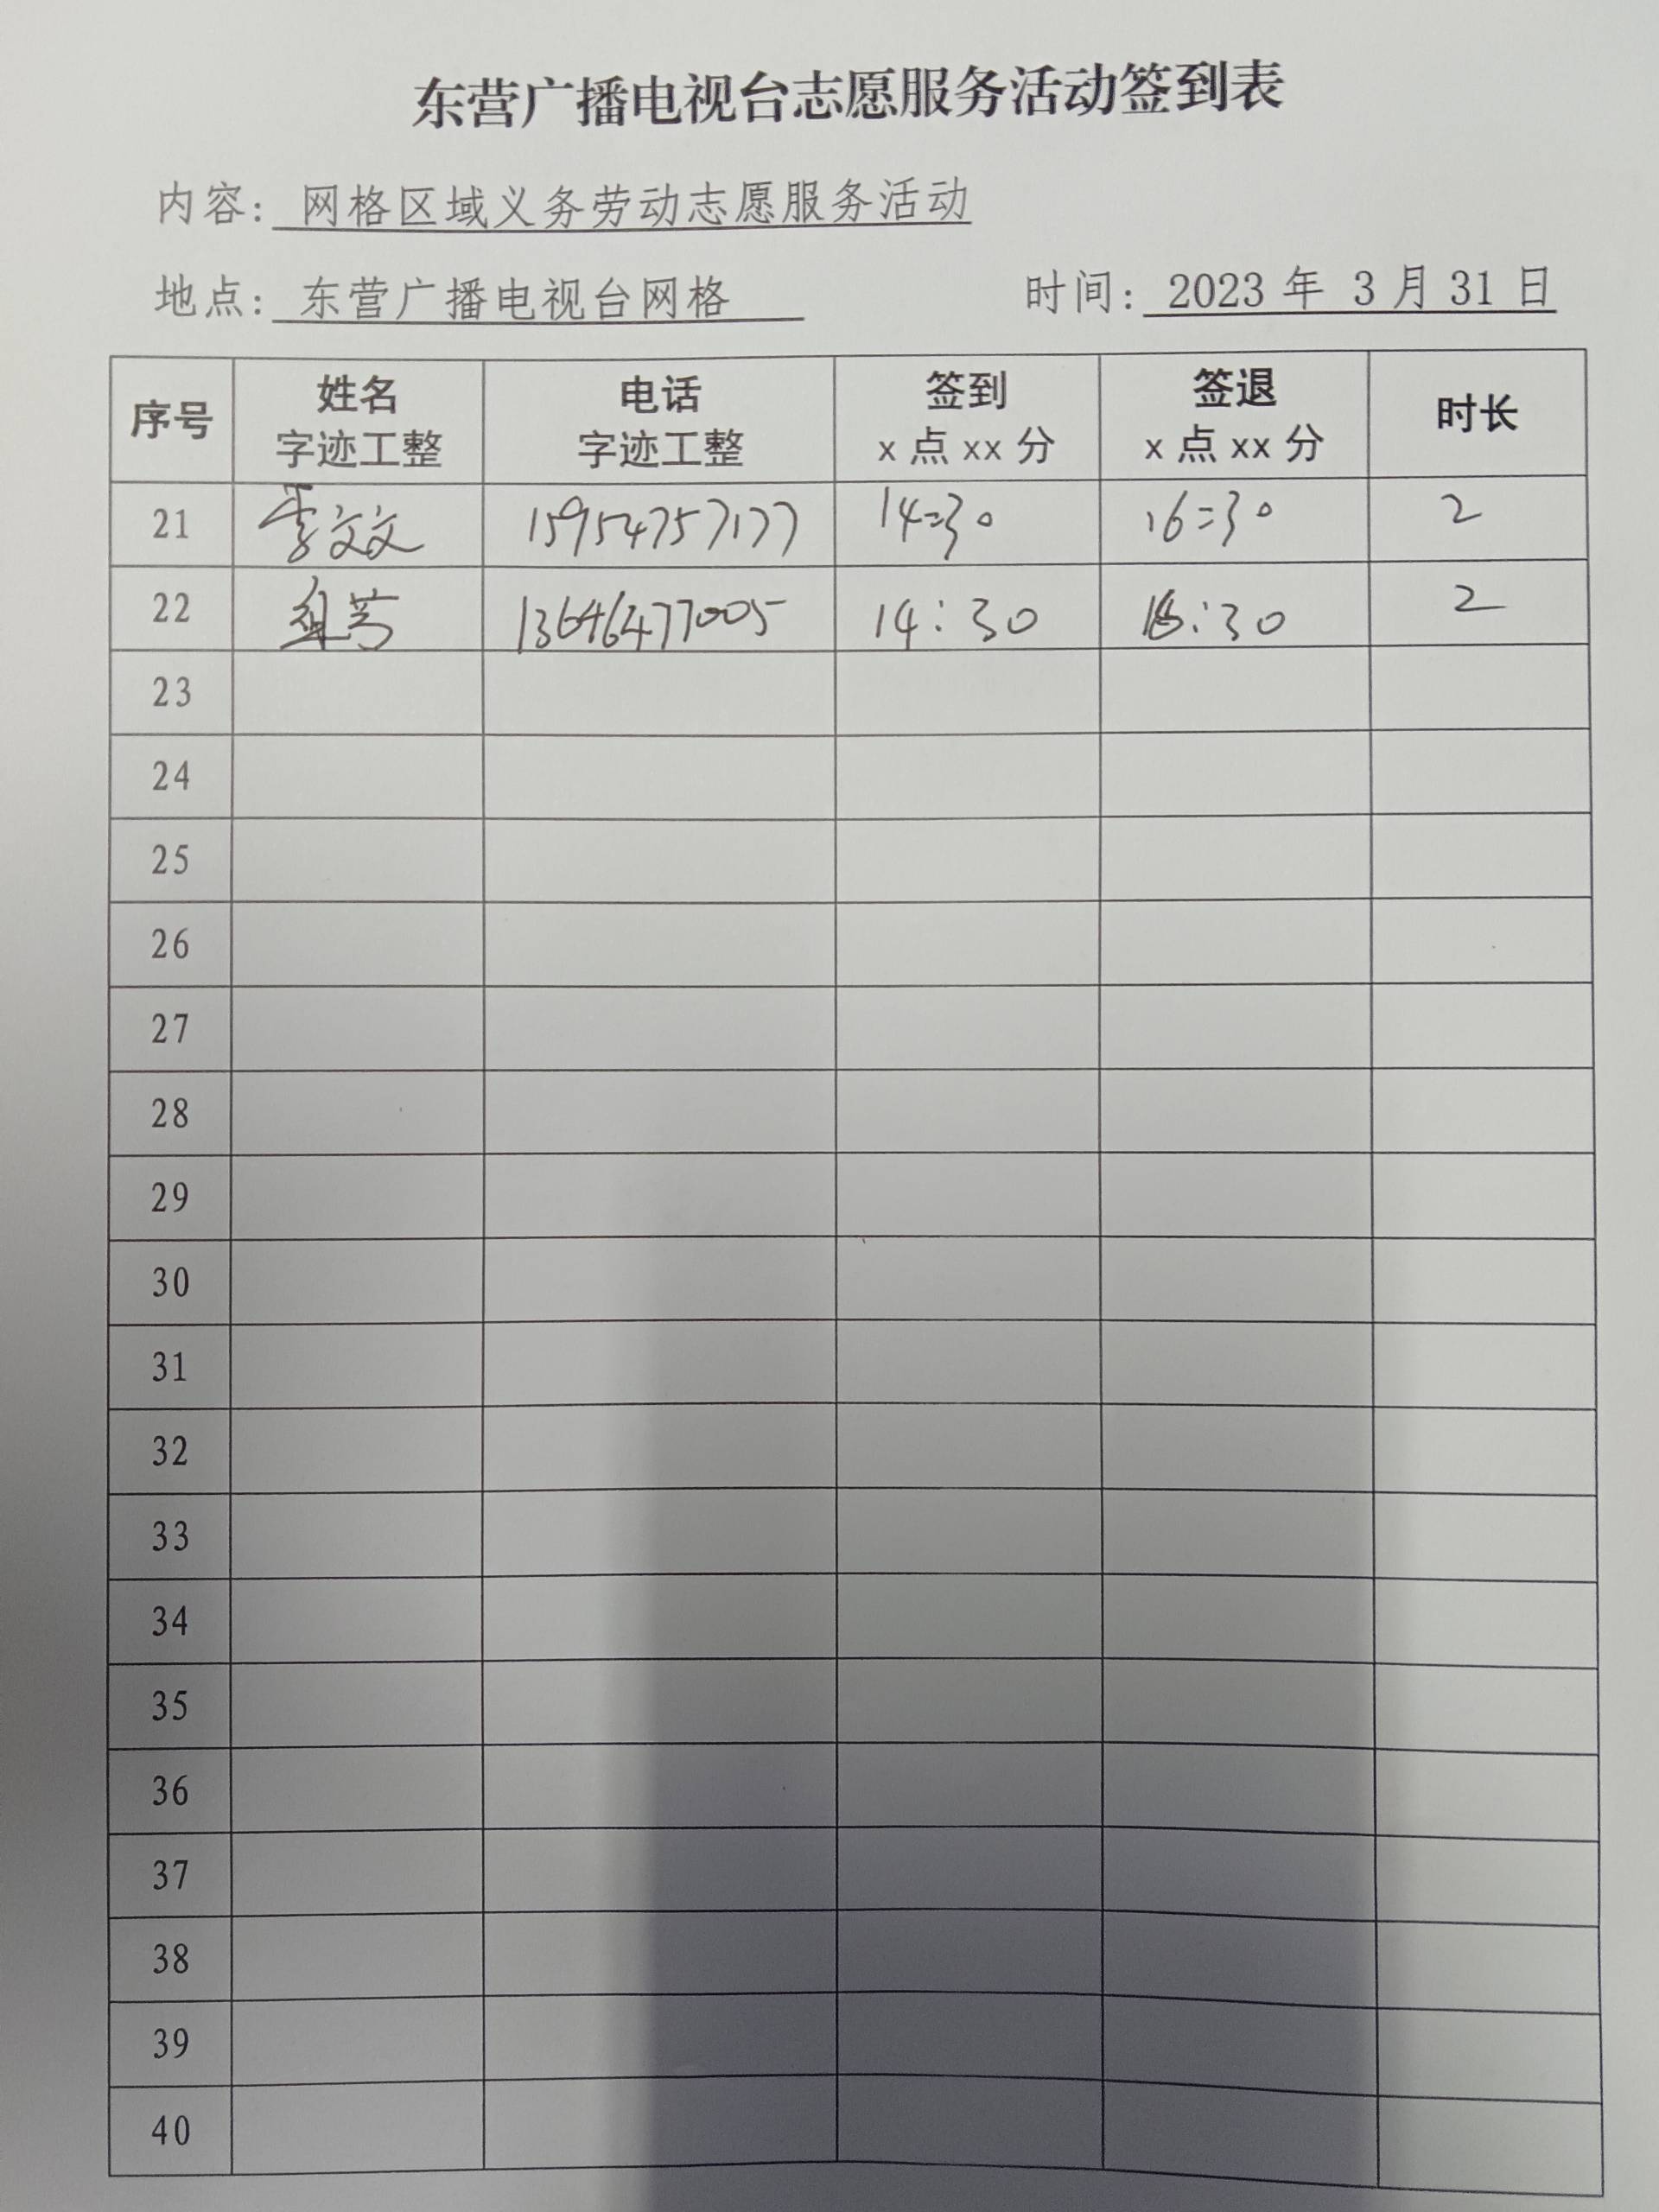 东营广播电视台志愿服务活动签到表
内容: 网格区域义务劳动志愿服务活动
地点: 东营广播电视台网格 时间: 2023 年 3 月 31 日
序号 姓名 字迹工整 电话 字迹工整 签到 x 点 xx 分 签退 x 点 xx 分 时长
21 李文文 15954757177 14:30 16:30 2
22 13646477005 14:30 16:30 2
23
24
25
26
27
28
29
30
31
32
33
34
35
36
37
38
39
40